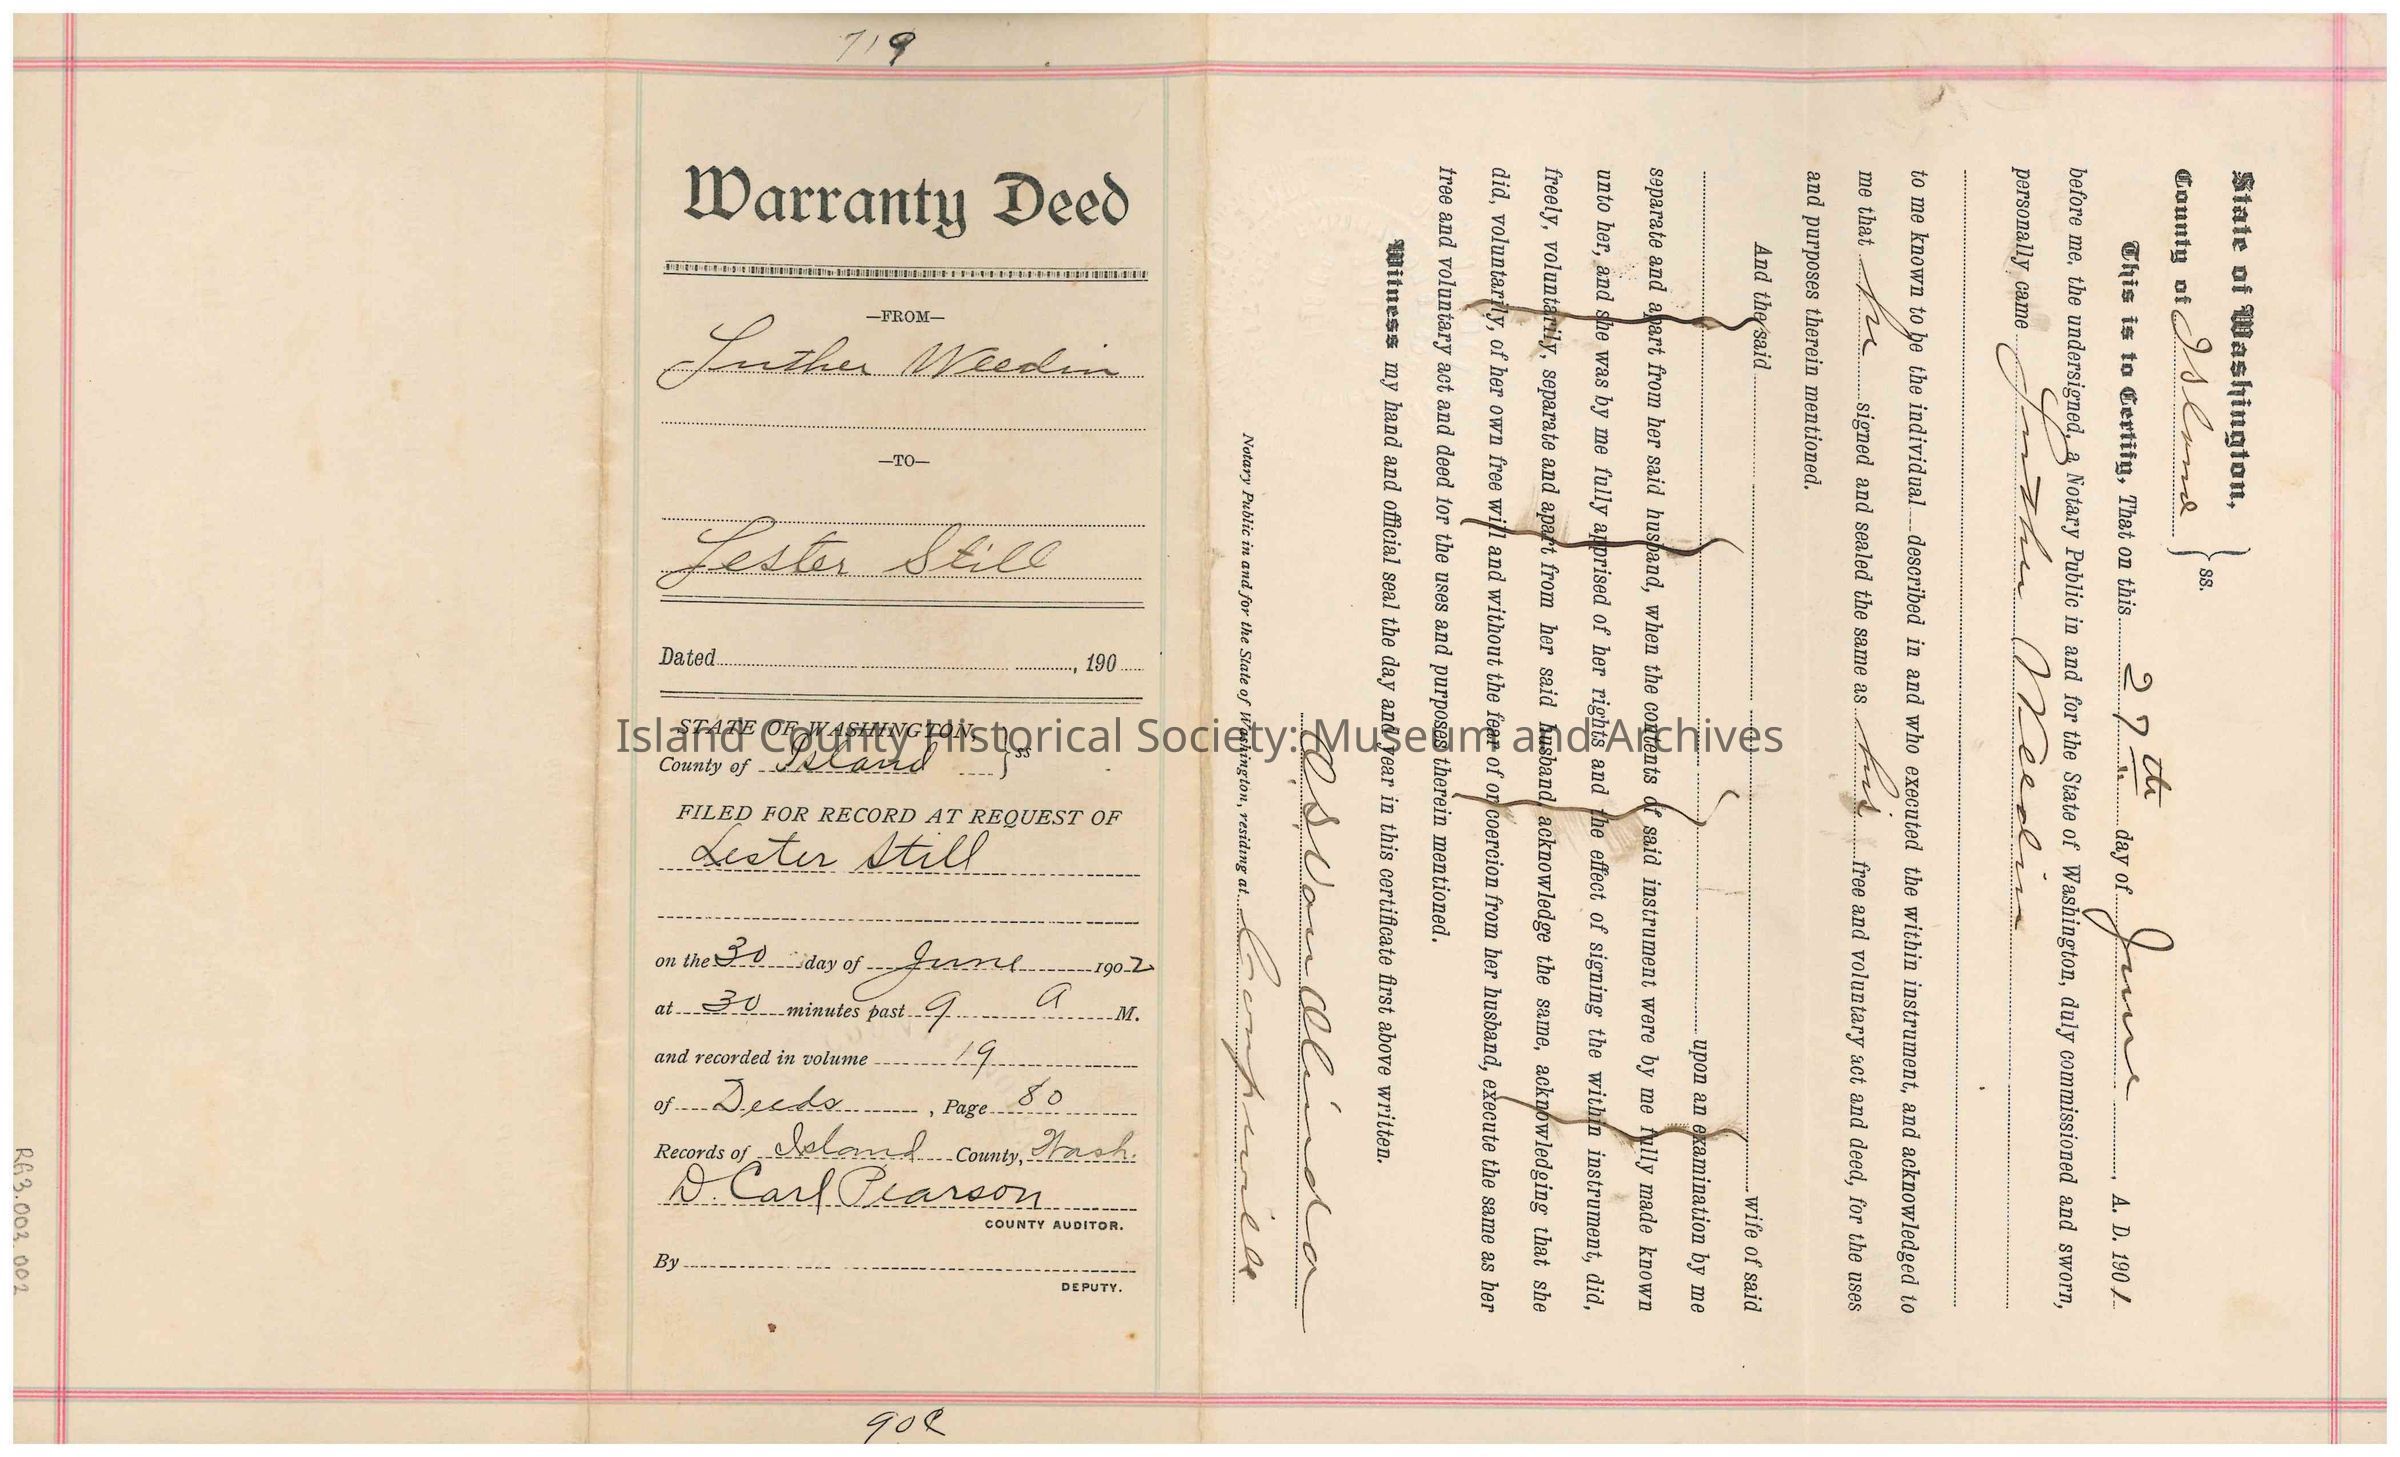 719
Warranty Deed
—FROM—
Luther Weedin
—TO—
Lester Still
Dated , 190
STATE OF WASHINGTON, } ss
County of Island
FILED FOR RECORD AT REQUEST OF
Lester Still
on the 30 day of June 1902
at 30 minutes past 9 A M.
and recorded in volume 19
of Deeds , Page 80
Records of Island County, Wash.
D. Carl Pearson
COUNTY AUDITOR.
By
DEPUTY.
State of Washington, } ss.
County of Island
This is to Certify, That on this 27th day of June , A. D. 1901
before me, the undersigned, a Notary Public in and for the State of Washington, duly commissioned and sworn,
personally came Luther Weedin
to me known to be the individual described in and who executed the within instrument, and acknowledged to
me that he signed and sealed the same as his free and voluntary act and deed, for the uses
and purposes therein mentioned.
And the said wife of said
upon an examination by me
separate and apart from her said husband, when the contents of said instrument were by me fully made known
unto her, and she was by me fully apprised of her rights and the effect of signing the within instrument, did,
freely, voluntarily, separate and apart from her said husband, acknowledge the same, acknowledging that she
did, voluntarily, of her own free will and without the fear of or coercion from her husband, execute the same as her
free and voluntary act and deed for the uses and purposes therein mentioned.
Witness my hand and official seal the day and year in this certificate first above written.
Notary Public in and for the State of Washington, residing at Coupeville
Island County Historical Society: Museum and Archives
RG3.002.002